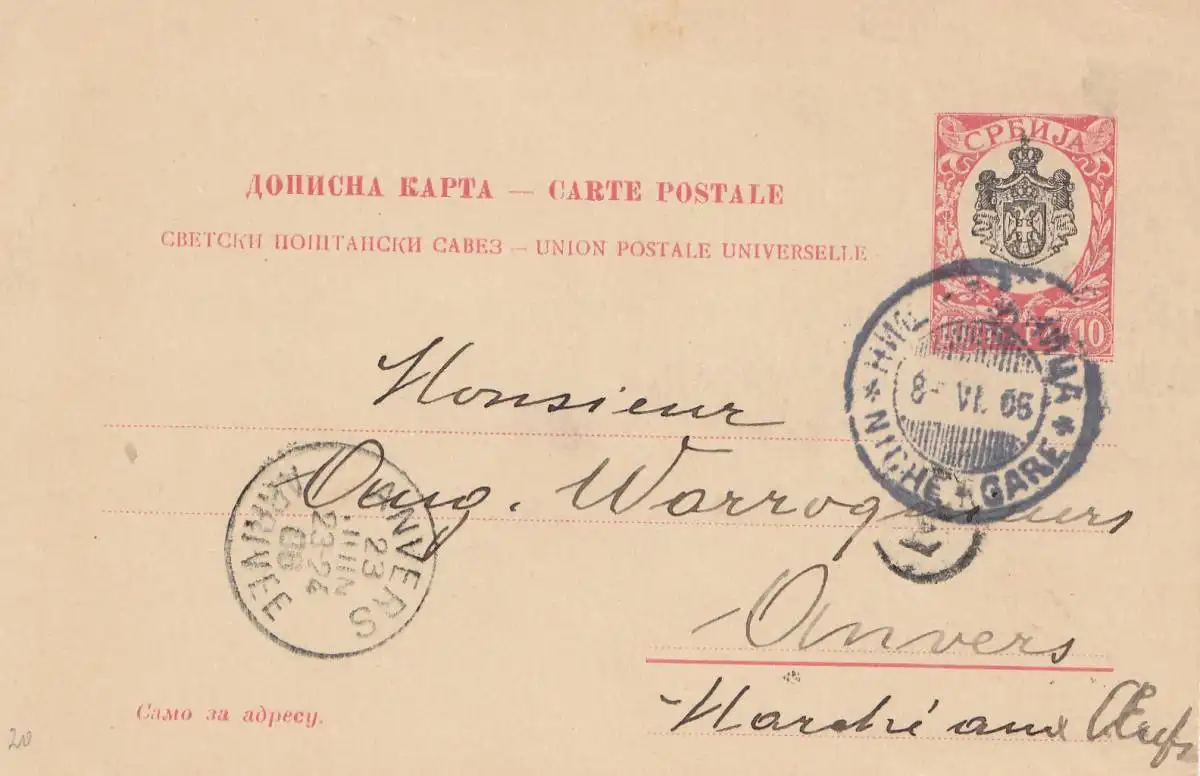 СРБИЈА
ДОПИСНА КАРТА — CARTE POSTALE
СВЕТСКИ ПОШТАНСКИ САВЕЗ — UNION POSTALE UNIVERSELLE
10 10
НИШ
8- VI. 06
* NICHE * GARE *
Monsieur
Aug.
Anvers
Marché aux Œufs
ANVERS
23
JUIN
23-24
06
ARRIVÉE
Само за адресу.
20